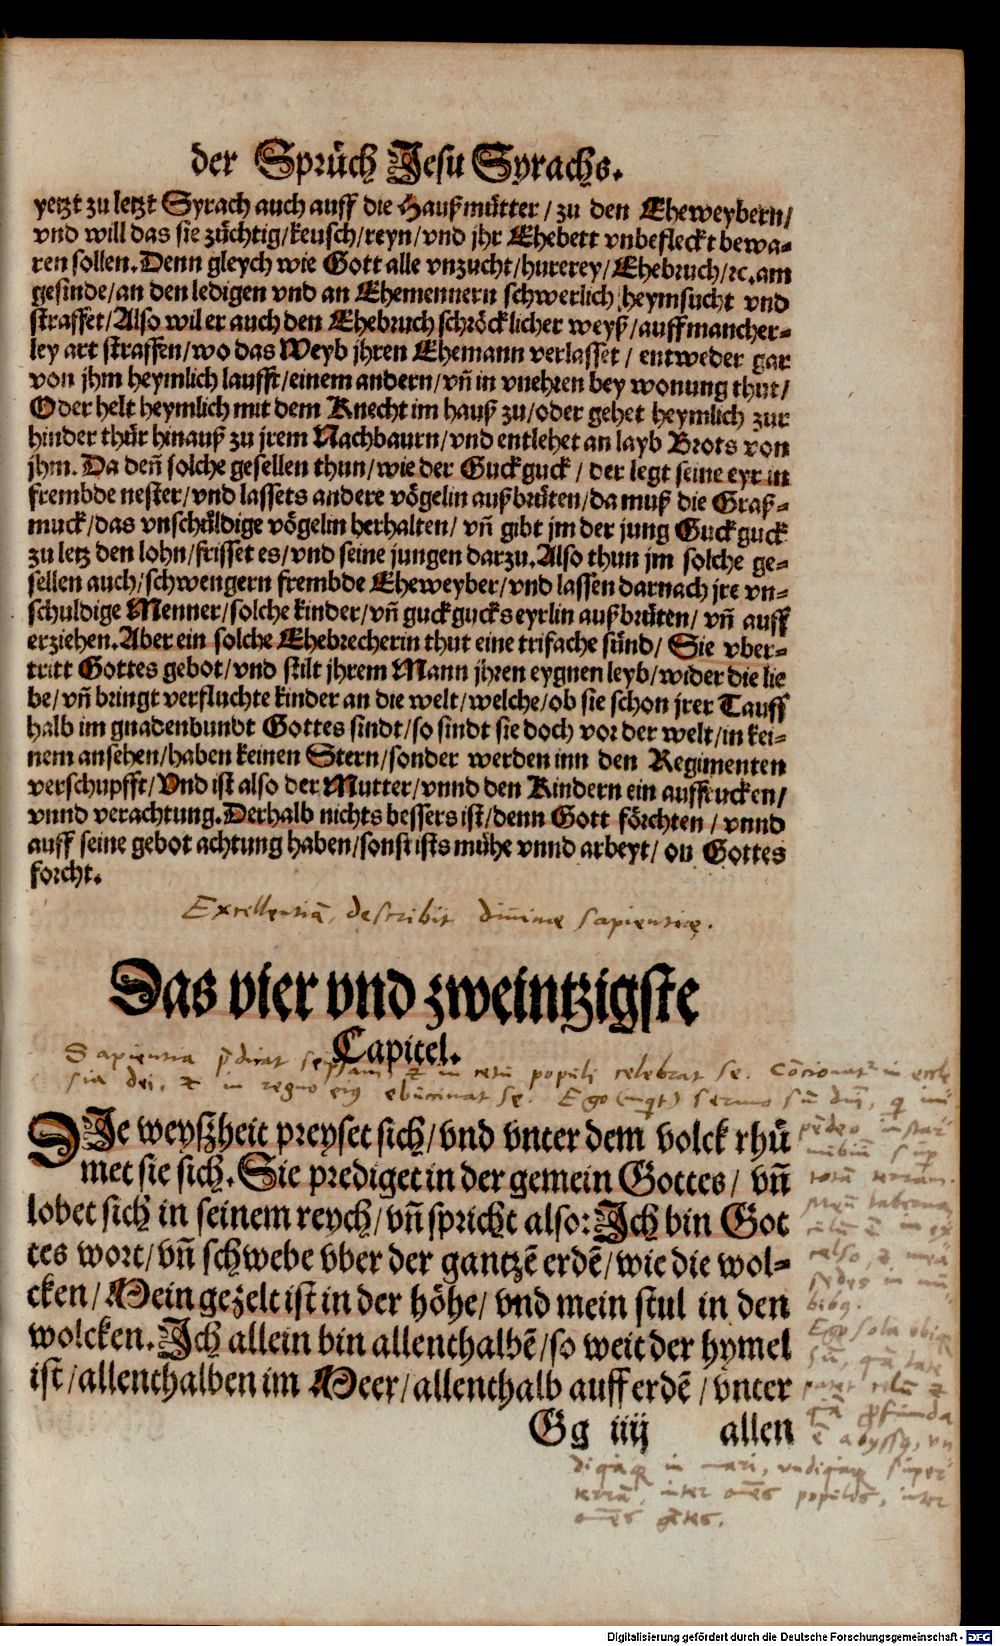 der Sprüch Jesu Syrachs.
yetzt zu letzt Syrach auch auff die Haußmütter/ zu den Eheweybern/
vnd will das sie züchtig/keusch/reyn/vnd jhr Ehebett vnbefleckt bewa=
ren sollen. Denn gleych wie Gott alle vnzucht/hurerey/Ehebruch/ꝛc. am
gesinde/an den ledigen vnd an Ehemennern schwerlich heymsucht vnd
straffet/Also wil er auch den Ehebruch schröcklicher weyß/auff mancher=
ley art straffen/wo das Weyb jhren Ehemann verlasset/ entweder gar
von jhm heymlich laufft/einem andern/vñ in vnehren bey wonung thut/
Oder helt heymlich mit dem Knecht im hauß zu/oder gehet heymlich zur
hinder thür hinauß zu jrem Nachbaurn/vnd entlehet an layb Brots von
jhm. Da deñ solche gesellen thun/wie der Guckguck/ der legt seine eyr in
frembde nester/vnd lassets andere vögelin außbrüten/da muß die Graß=
muck/das vnschüldige vögelin herhalten/ vñ gibt jm der jung Guckguck
zu letz den lohn/frisset es/vnd seine jungen darzu. Also thun jm solche ge=
sellen auch/schwengern frembde Eheweyber/vnd lassen darnach jre vn=
schuldige Menner/solche kinder/vñ guckgucks eyrlin außbrüten/ vñ auff
erziehen. Aber ein solche Ehebrecherin thut eine trifache sünd/ Sie vber=
tritt Gottes gebot/vnd stilt jhrem Mann jhren eygnen leyb/wider die lie
be/vñ bringt verfluchte kinder an die welt/welche/ob sie schon jrer Tauff
halb im gnadenbundt Gottes sindt/so sindt sie doch vor der welt/in kei=
nem ansehen/haben keinen Stern/sonder werden inn den Regimenten
verschupfft/Vnd ist also der Mutter/vnnd den Kindern ein auffrucken/
vnnd verachtung. Derhalb nichts bessers ist/denn Gott förchten/ vnnd
auff seine gebot achtung haben/sonst ists mühe vnnd arbeyt/ on Gottes
forcht.
Excellentiã describit diuinæ sapientię.
Das vier vnd zweintzigste
Capitel.
Sapientia p̃dicat seipsam, et in cetu populi celebrat se. Cõcionat² in eccle
sia dei, et in regno eius ebuccinat se. Ego (inqt) sermo sũ dñi,
DIe weyßheit preyset sich/vnd vnter dem volck rhü
met sie sich. Sie prediget in der gemein Gottes/ vñ
lobet sich in seinem reych/vñ spricht also: Ich bin Got
tes wort/vñ schwebe vber der gantzẽ erdẽ/wie die wol=
cken/Mein gezelt ist in der höhe/ vnd mein stul in den
wolcken. Ich allein bin allenthalbẽ/so weit der hymel
ist/allenthalben im Meer/allenthalb auff erdẽ/vnter
Gg iiij allen
instar
nubiũ sup
totã terram.
Meũ taberna
culũ ẽ in ex
celso, et mea
sedes in nu
bibq.
Ego sola ubiq
sũ, quã late
patet celũ et
quã profunda
ẽ abyssq, un
diquaq in mari, undiquaq super
terrã, inter oẽs populos, inter
oẽs gẽtes.
Digitalisierung gefördert durch die Deutsche Forschungsgemeinschaft - DFG